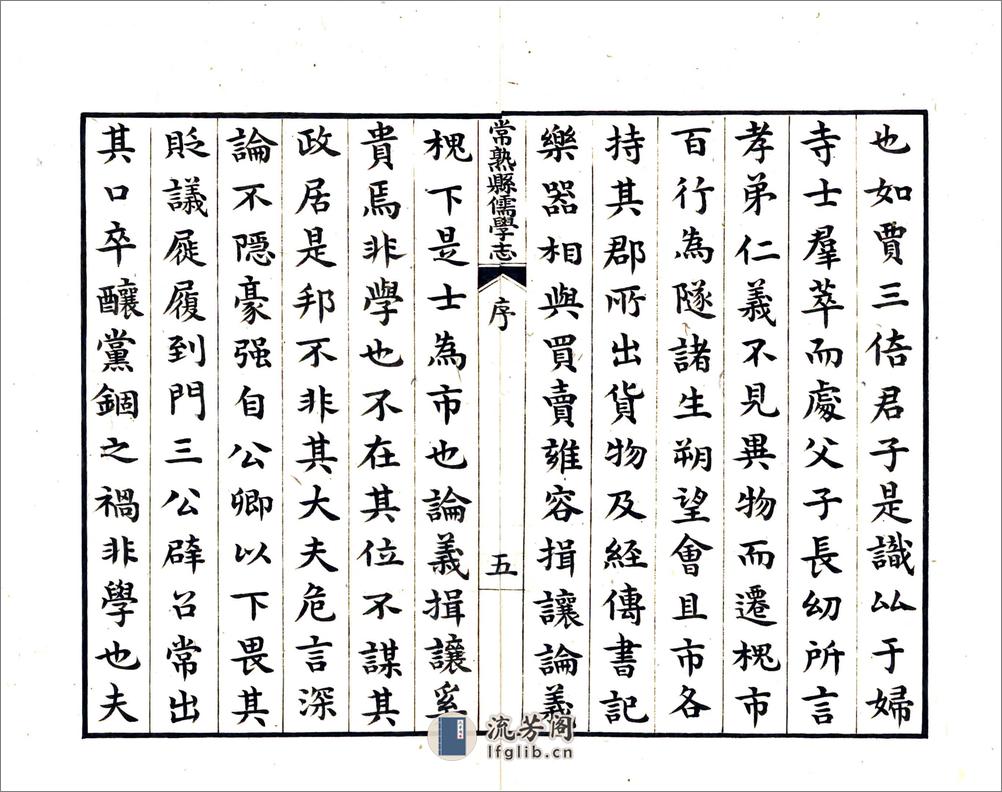 也如賈三倍君子是識厶于婦
寺士羣萃而處父子長幼所言
孝弟仁義不見異物而遷槐市
百行為隧諸生朔望會且市各
持其郡所出貨物及經傳書記
樂器相與買賣雍容揖讓論義
常熟縣儒學志
序
五
槐下是士為市也論義揖讓奚
貴焉非學也不在其位不謀其
政居是邦不非其大夫危言深
論不隱豪强自公卿以下畏其
貶議屣履到門三公辟召常出
其口卒釀黨錮之禍非學也夫
流芳阁
lfglib.cn